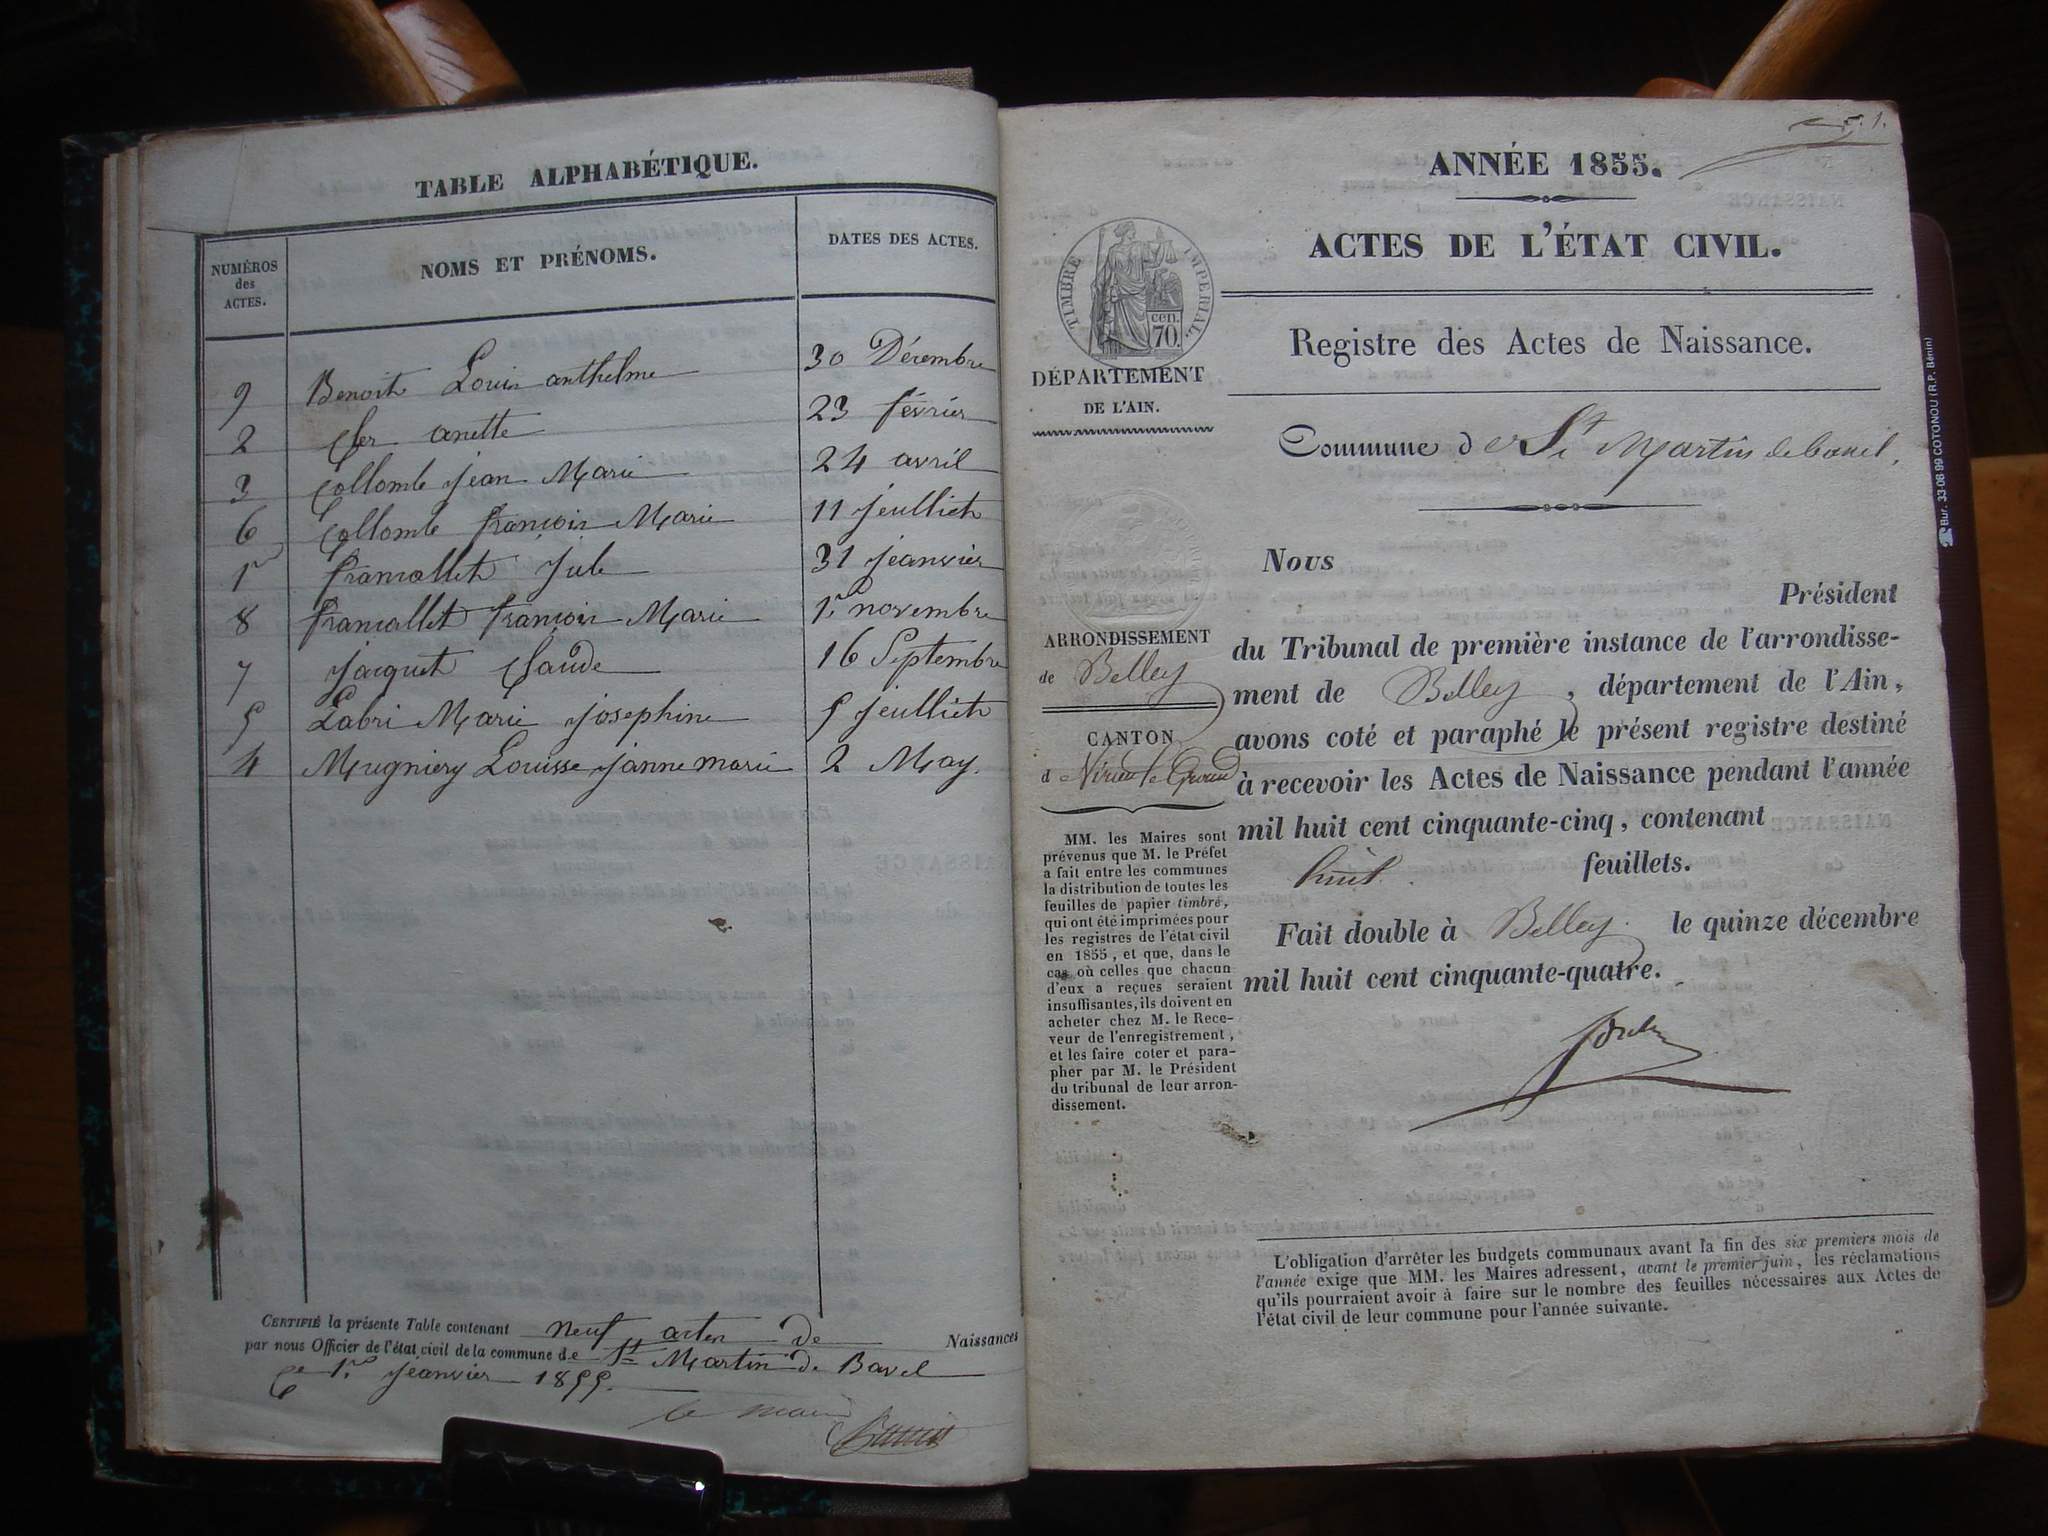 TABLE ALPHABÉTIQUE.
NUMÉROS
des
ACTES.
NOMS ET PRÉNOMS.
DATES DES ACTES.
9 Benoit Louis anthelme 30 Décembre
2 Cler anette 23 février
3 Collomb jean Marie 24 avril
6 Collomb françois Marie 11 jeulliet
1r francallet Jule 31 jeanvier
8 francallet françois Marie 1.r novembre
7 jacquet Claude 16 Septembre
5 Labri Marie josephine 5 jeulliet
4 Mugniery Louisse janne marie 2 May.
CERTIFIÉ la présente Table contenant neuf actes de Naissances
par nous Officier de l'état civil de la commune de St Martin de Bavel
Ce 1.r jeanvier 1855.
le maire
ANNÉE 1855.
ACTES DE L'ÉTAT CIVIL.
TIMBRE IMPERIAL.
cen.
70.
Registre des Actes de Naissance.
DÉPARTEMENT
DE L'AIN.
Commune de St Martin de bavel.
Nous
Président
du Tribunal de première instance de l'arrondisse-
ment de Belley, département de l'Ain,
avons coté et paraphé le présent registre destiné
à recevoir les Actes de Naissance pendant l'année
mil huit cent cinquante-cinq, contenant
huit feuillets.
Fait double à Belley. le quinze décembre
mil huit cent cinquante-quatre.
ARRONDISSEMENT
de Belley
CANTON
d e Virieu le Grand
MM. les Maires sont
prévenus que M. le Préfet
a fait entre les communes
la distribution de toutes les
feuilles de papier timbré,
qui ont été imprimées pour
les registres de l'état civil
en 1855, et que, dans le
cas où celles que chacun
d'eux a reçues seraient
insuffisantes, ils doivent en
acheter chez M. le Rece-
veur de l'enregistrement,
et les faire coter et para-
pher par M. le Président
du tribunal de leur arron-
dissement.
L'obligation d'arrêter les budgets communaux avant la fin des six premiers mois de
l'année exige que MM. les Maires adressent, avant le premier juin, les réclamations
qu'ils pourraient avoir à faire sur le nombre des feuilles nécessaires aux Actes de
l'état civil de leur commune pour l'année suivante.
Bur. 33-06 99 COTONOU (R.P. Bénin)